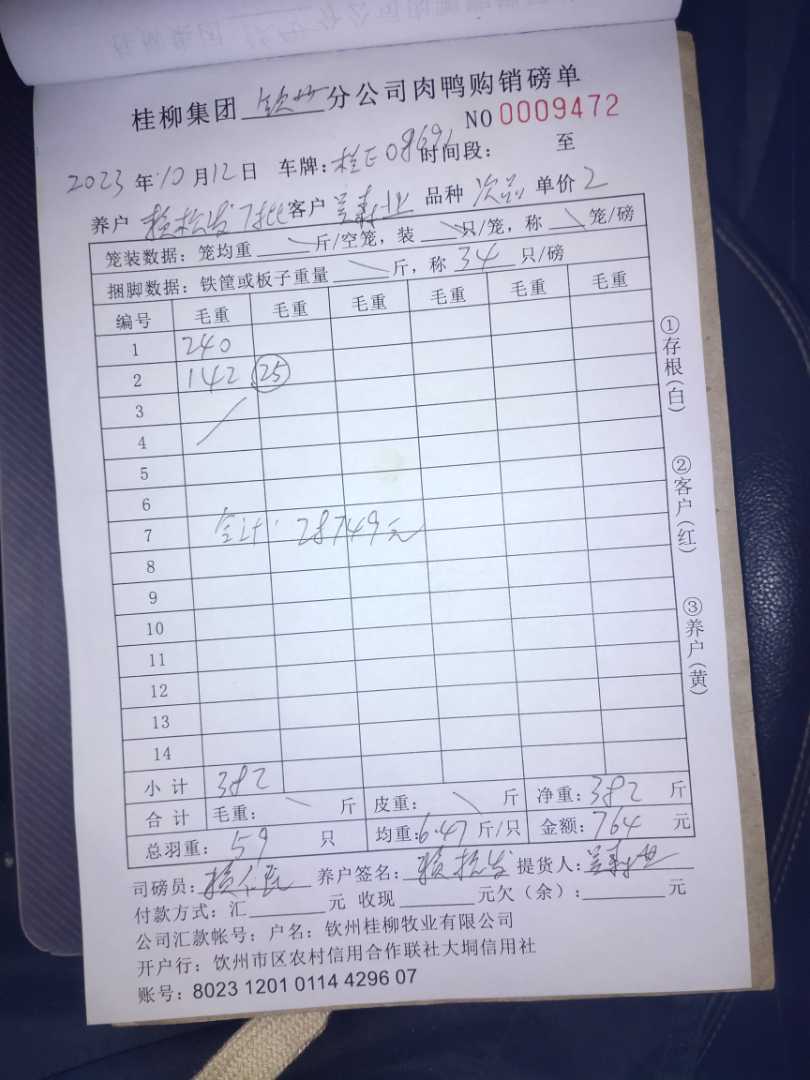 桂柳集团 钦州 分公司肉鸭购销磅单
NO 0009472
2023 年 10 月 12 日 车牌：桂E08691 时间段： 至
养户 赖松发 7批 客户 业 品种 次品 单价 2
笼装数据：笼均重 斤/空笼，装 只/笼，称 笼/磅
捆脚数据：铁筐或板子重量 斤，称 34 只/磅
编号 毛重 毛重 毛重 毛重 毛重 毛重
1 240
2 142 25
3
4
5
6
7 合计：28749元
8
9
10
11
12
13
14
小计 382
合计 毛重： 斤 皮重： 斤 净重：382 斤
总羽重：59 只 均重：6.47 斤/只 金额：764 元
司磅员：赖 养户签名：赖松发 提货人：业
付款方式：汇 元 收现 元欠（余）： 元
公司汇款帐号：户名：钦州桂柳牧业有限公司
开户行：饮州市区农村信用合作联社大垌信用社
账号：8023 1201 0114 4296 07
①存根（白）
②客户（红）
③养户（黄）